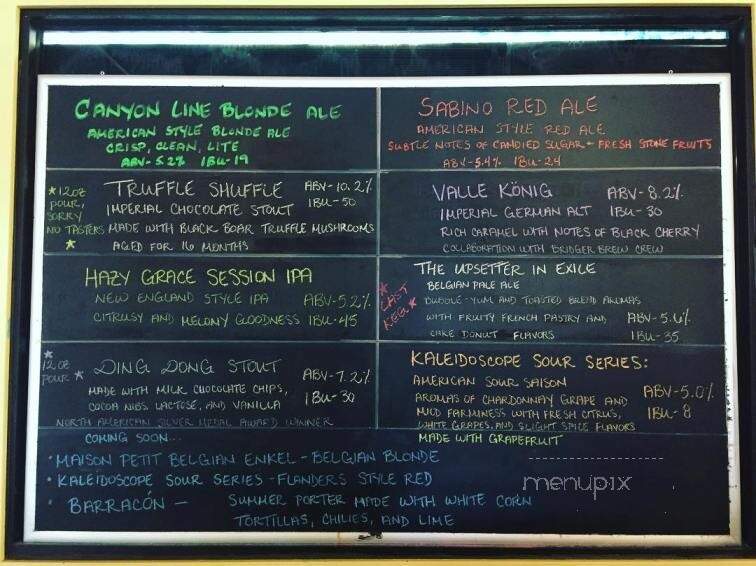 CANYON LINE BLONDE ALE
AMERICAN STYLE BLONDE ALE
CRISP, CLEAN, LITE
ABV-5.2% IBU-19
SABINO RED ALE
AMERICAN STYLE RED ALE
SUBTLE NOTES OF CANDIED SUGAR + FRESH STONE FRUITS
ABV-5.4% IBU-24
*12OZ POUR, SORRY NO TASTERS *
TRUFFLE SHUFFLE ABV-10.2%
IMPERIAL CHOCOLATE STOUT IBU-50
MADE WITH BLACK BOAR TRUFFLE MUSHROOMS
AGED FOR 16 MONTHS
VALLE KÖNIG ABV-8.2%
IMPERIAL GERMAN ALT IBU-30
RICH CARAMEL WITH NOTES OF BLACK CHERRY
COLLABORATION WITH BRIDGER BREW CREW
HAZY GRACE SESSION IPA
NEW ENGLAND STYLE IPA ABV-5.2%
CITRUSY AND MELONY GOODNESS IBU-45
*LAST KEG*
THE UPSETTER IN EXILE
BELGIAN PALE ALE
BUBBLE-YUM AND TOASTED BREAD AROMAS
WITH FRUITY FRENCH PASTRY AND ABV-5.6%
CAKE DONUT FLAVORS IBU-35
*12 OZ POUR *
DING DONG STOUT ABV-7.2%
MADE WITH MILK CHOCOLATE CHIPS, IBU-30
COCOA NIBS, LACTOSE, AND VANILLA
NORTH AMERICAN SILVER MEDAL AWARD WINNER
KALEIDOSCOPE SOUR SERIES:
AMERICAN SOUR SAISON
AROMAS OF CHARDONNAY GRAPE AND ABV-5.0%
MILD FARMINESS WITH FRESH CITRUS, IBU-8
WHITE GRAPES, AND SLIGHT SPICE FLAVORS
MADE WITH GRAPEFRUIT
COMING SOON...
• MAISON PETIT BELGIAN ENKEL - BELGIAN BLONDE
• KALEIDOSCOPE SOUR SERIES - FLANDERS STYLE RED
• BARRACÓN - SUMMER PORTER MADE WITH WHITE CORN
TORTILLAS, CHILIES, AND LIME
menupix